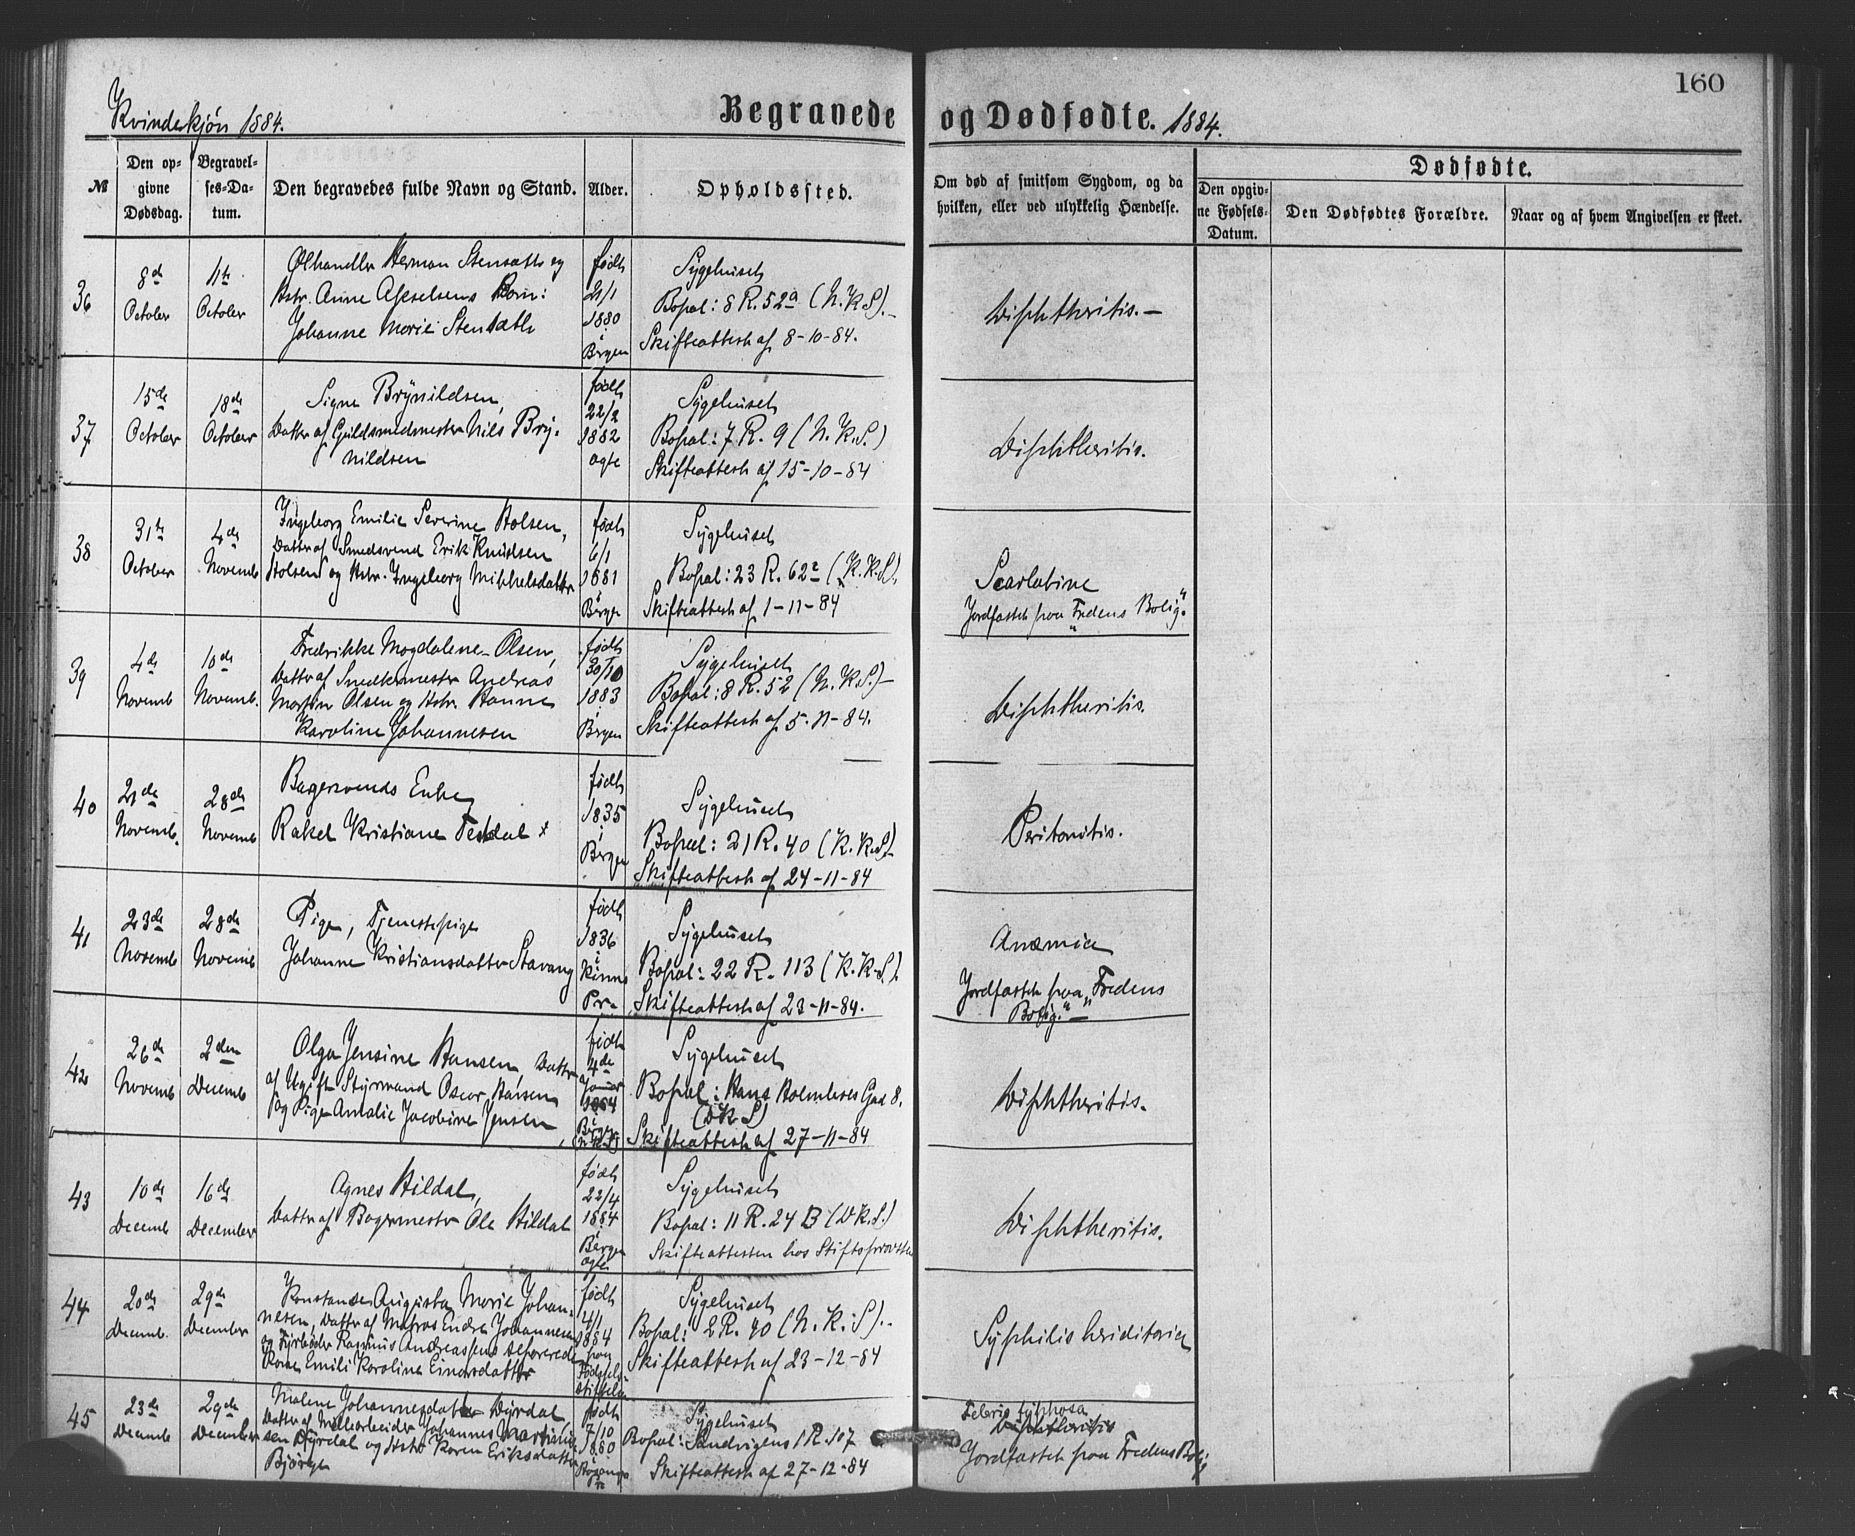 160
Kvindekjön 1884.
Begravede og Dødfødte. 1884.
№
Den op-
givne
Dødsdag.
Begravel-
ses-Da-
tum.
Den begravedes fulde Navn og Stand.
Alder.
Opholdssted.
Om død af smitsom Sygdom, og da
hvilken, eller ved ulykkelig Hændelse.
Dødfødte.
Den opgiv-
ne Fødsels-
Datum.
Den Dødfødtes Forældre.
Naar og af hvem Angivelsen er skeet.
36
8de
October
11te
October
Ølhandler Herman Stensæth og
Hstr. Anne Akselsens Barn:
Johanne Marie Stensæth
født
21/1
1880
i
Bergen
Sygehuset
Bopæl: 8 R. 52a (N.K.S).-
Skifteattest af 8-10-84.
Diphtheritis.-
37
15de
October
18de
October
Signe Brynildsen,
Datter af Guldsmedmester Nils Bry-
nildsen
født
22/2
1882
ægte
Sygehuset
Bopæl: 7 R. 9 (N.K.S.)
Skifteattest af 15-10-84
Diphtheritis.
38
31te
October
4de
Novemb
Ingeborg Emilie Severine Holsen,
Datter af Smedsvend Erik Knudsen
Holsen og Hstr. Ingeborg Mikkelsdatter
født
6/1
1881
i
Bergen
Sygehuset
Bopæl: 23 R. 62c (K.K.S).
Skifteattest af 1-11-84
Scarlatina
Jordfæstet paa "Fredens Bolig".
39
4de
Novemb
10de
Novemb.
Fredrikke Magdalene Olsen,
Datter af Snedkermester Andreas
Martin Olsen og Hstr. Hanne
Karoline Johannesen
født
30/10
1883
i
Bergen
Sygehuset
Bopæl: 8 R. 52 (N.K.S.)-
Skifteattest af 5-11-84.
Diphtheritis.
40
21de
Novemb.
28de
Novemb
Bagersvends Enke,
Rakel Kristiane Tesdal
født
1835
i
Bergen
Sygehuset
Bopæl: 21 R. 40 (K.K.S)-
Skifteattest af 24-11-84
Peritonitis.
41
23de
Novemb
28de
Novemb
Pige, Tjenestepige
Johanne Kristiansdatter Stavang
født
1836
i
Kinns
Pr.
Sygehuset
Bopæl: 22 R. 113 (K.K.S).
Skifteattest af 23-11-84.
Anæmia
Jordfæstet paa "Fredens
Bolig."-
42
26de
Novemb
2den
Decemb
Olga Jensine Hansen, Datter
af Ugift Styrmand Oscar Hansen
og Pige Amalie Jacobine Jensen
født
4de
Januar
1884
i
Bergen
(N.K.S)
Sygehuset
Bopæl: Hans Holmboes Gad 8.
(D.K.S)
Skifteattest af 27-11-84
Diphtheritis.
43
10de
Decemb
16de
December
Agnes Hildal,
Datter af Bagermester Ole Hildal
født
22/4
1884
i
Bergen
ægte
Sygehuset
Bopæl: 11 R. 24 B (D.K.S.)
Skifteattesten hos Stiftsprovsten
Diphtheritis.
44
20de
Decemb.
29de
December
Konstanse Augusta Marie Johan-
nesen, Datter af Matros Endre Johannesen
og Fyrbøder Rasmus Andreassens
Kone Emili Karoline Einarsdatter
født
4/1
1884
paa
Fødsels-
stiftelsen
Sygehuset
Bopæl: 2 R. 90 (N.K.S).
Skifteattest af 23-12-84
Syphilis heriditaria
45
23de
Decemb
29de
December
Malene Johannesdatter Dyrdal,
Datter af Mellearbeider Johannes Martinius-
sen Dyrdal og Hstr Karen Eriksdatter
Bjørge
født
7/10
1860
Sygehuset
Bopæl: Sandvigens 1 R. 107
Skifteattest af 27-12-84
Febris typhosa
Diphtheritis
Jordfæstet paa Fredens Bolig